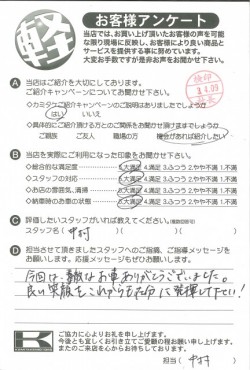 軽
お客様アンケート
当店では、お買い上げ頂いたお客様の声を可能な限り現場に反映し、お客様により良い商品とサービスを提供する事に努めています。
大変お手数ですが是非お声をお聞かせ下さい。
A 当店はご紹介を大切にしております。
ご紹介キャンペーンについてお聞かせ下さい。
◇カミタケご紹介キャンペーンのご説明はありましたでしょうか
はい いいえ
◇具体的にご紹介頂ける方とのご関係をお聞かせ頂けますでしょうか。
ご親族 ご友人 職場の方 機会があれば紹介したい
B 当店を実際にご利用になった印象をお聞かせ下さい。
◇総合的な満足度 5.大満足 4.満足 3.ふつう 2.やや不満 1.不満
◇スタッフの対応 5.大満足 4.満足 3.ふつう 2.やや不満 1.不満
◇お店の雰囲気、清掃 5.大満足 4.満足 3.ふつう 2.やや不満 1.不満
◇納車時のお車の状態 5.大満足 4.満足 3.ふつう 2.やや不満 1.不満
C 評価したいスタッフがいれば教えてください。(複数回答可)
スタッフ名( 中村 )
D 担当させて頂きましたスタッフへのご指摘、ご指導メッセージをお願いします。応援メッセージもぜひお願いします。
今回は、素敵なお車ありがとうございました。
良い笑顔をこれからも存分に発揮して下さい!
K
ご協力に心よりお礼を申し上げます。
今後とも宜しくお引き立てご愛顧の程お願い申し上げます。
またのご来店を心からお待ちしております。
担当( 中村 )